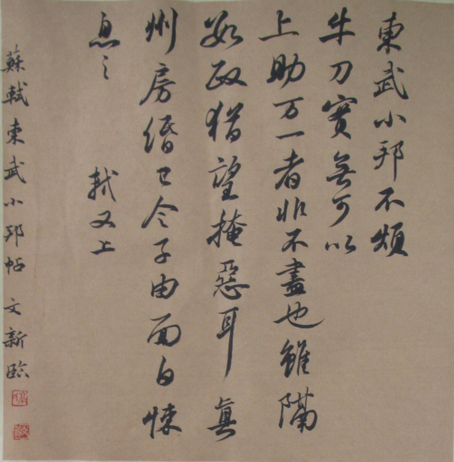 東武小邦不煩
牛刀實無可以
上助万一者非不盡也雖隔
數政猶望掩惡耳真
州房緡已令子由面白悚
息〻
軾又上
蘇軾東武小邦帖 文新臨